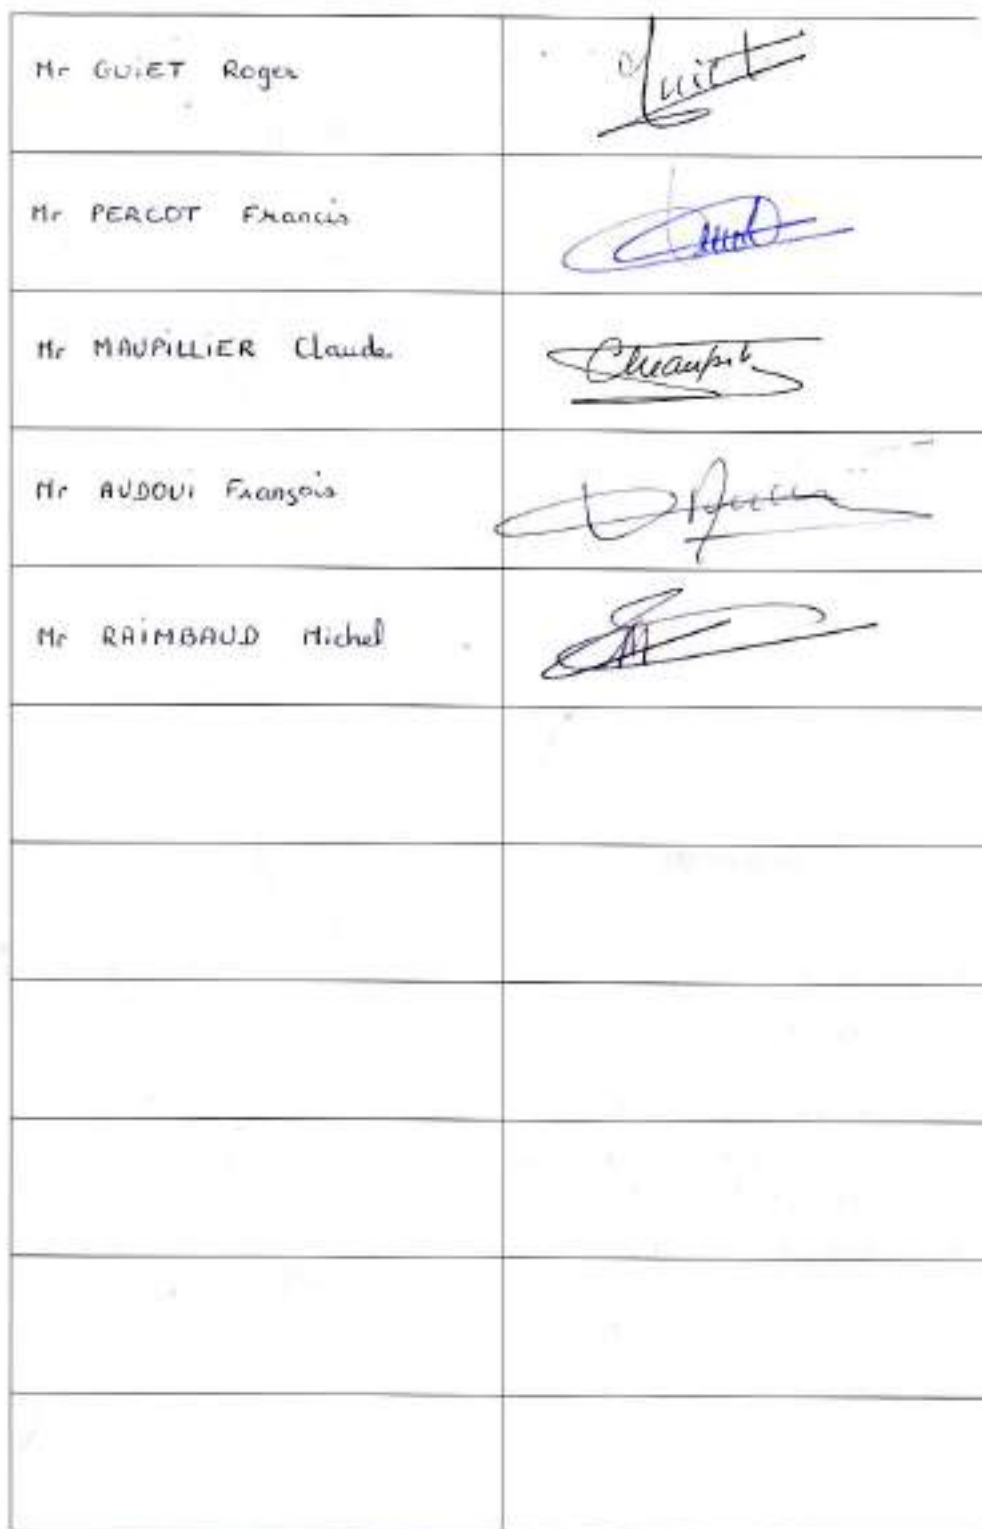 Mr GUIET Roger
Guiet
Mr PERCOT Francis
Mr MAUPILLIER Claude
Mr AUDOUI François
Mr RAIMBAUD Michel